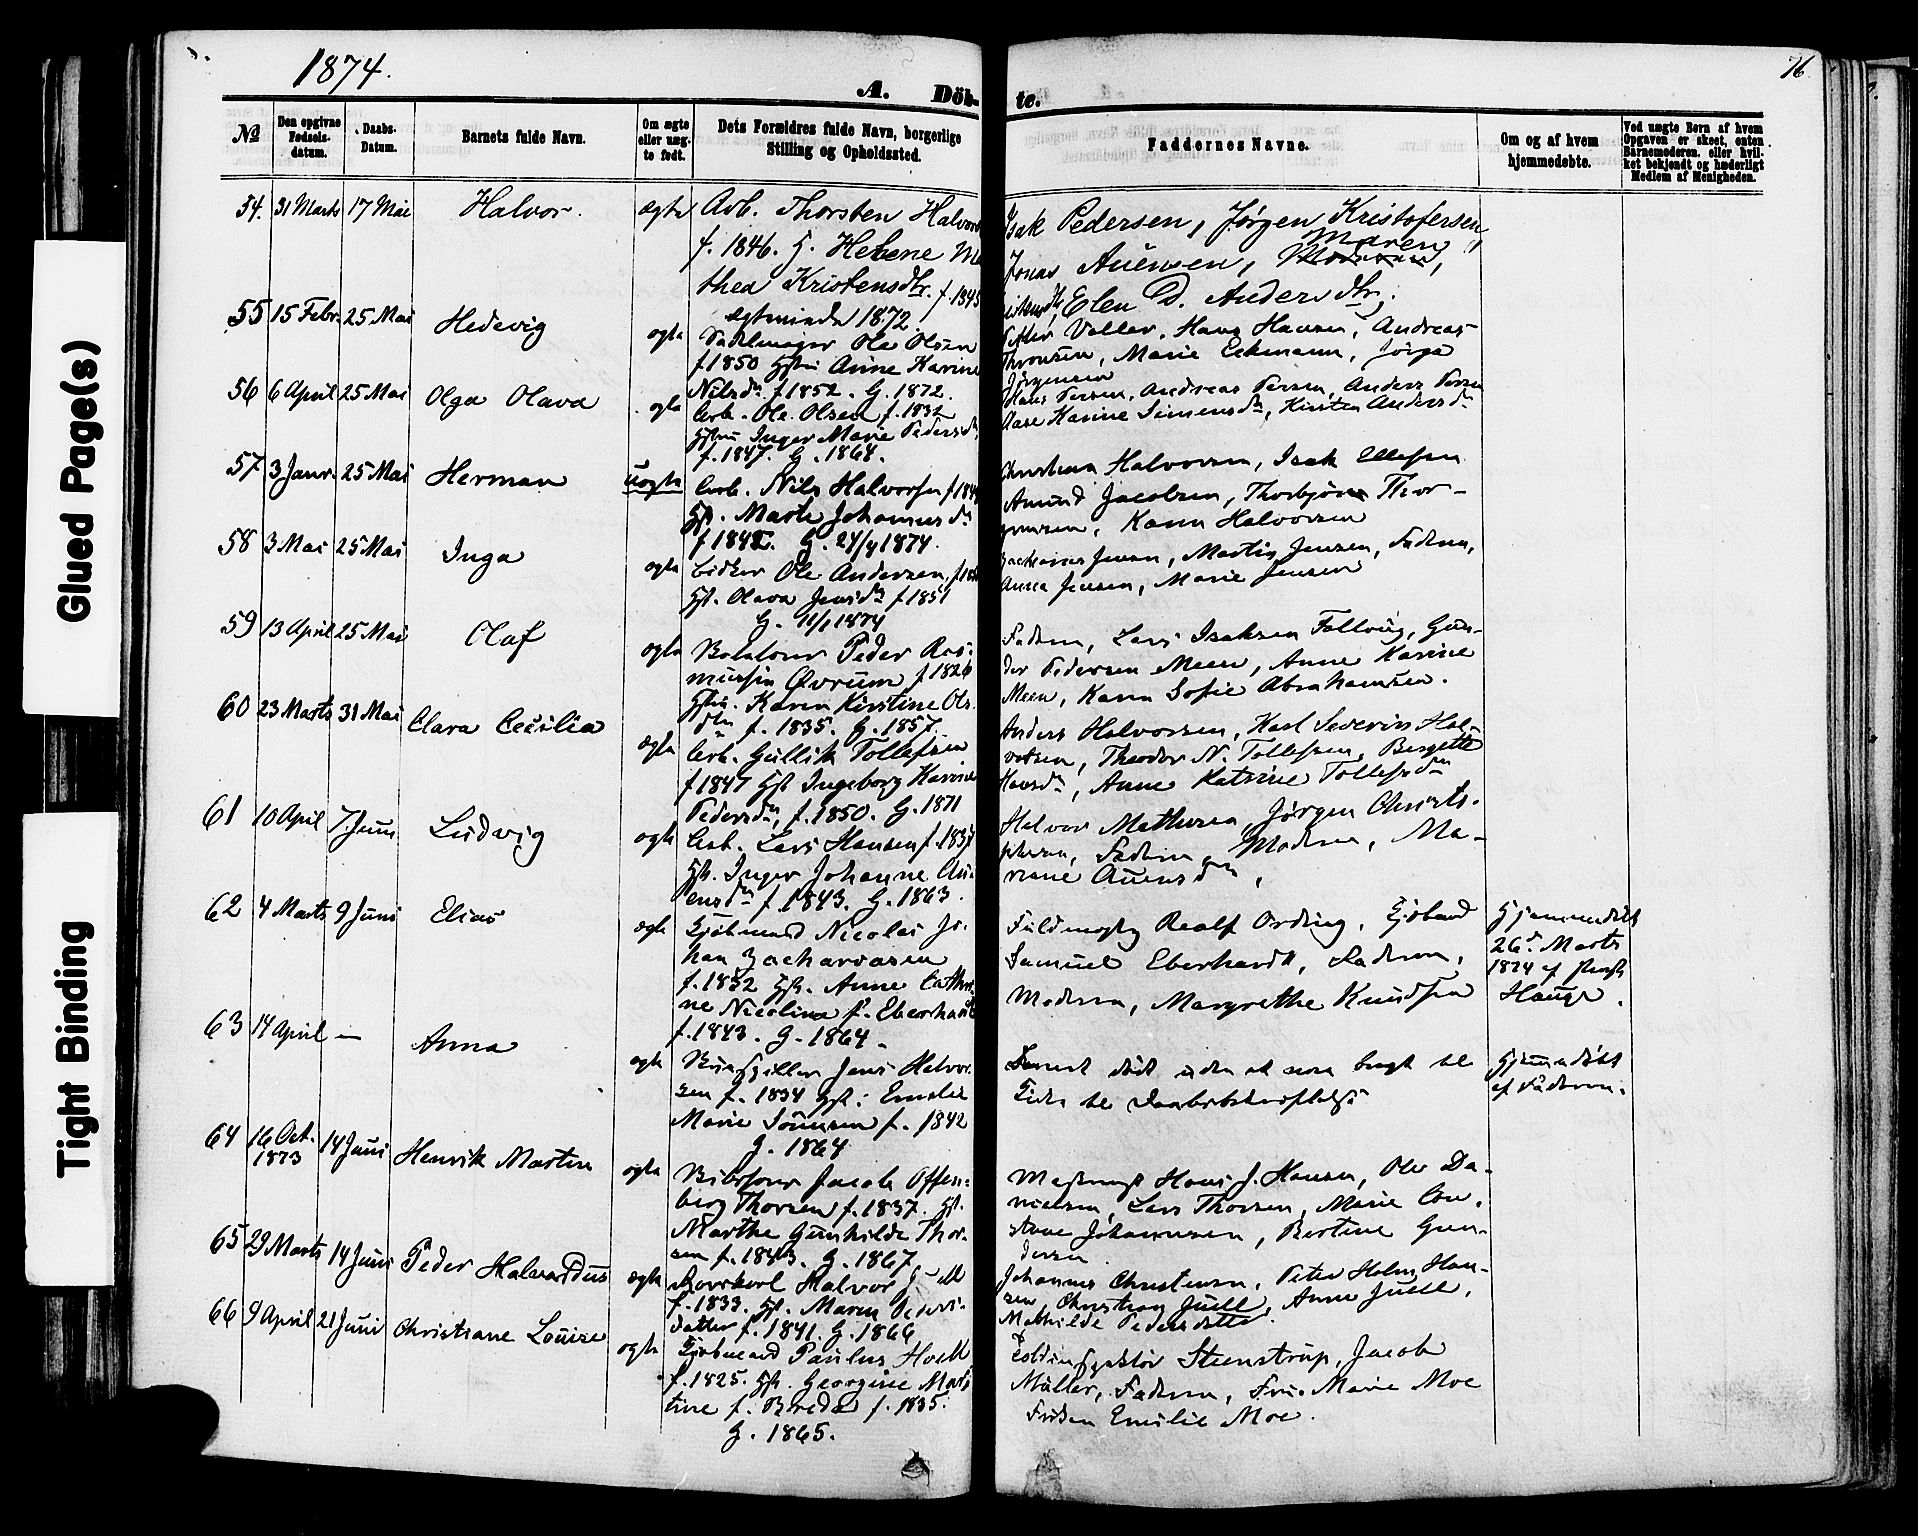 Glued Page(s)
Tight Binding
1874.
76.
A. Döb-
te.
№
Den opgivne Fødsels-datum.
Daabs-Datum.
Barnets fulde Navn.
Om ægte eller uæg-te født.
Dets Forældres fulde Navn, borgerlige Stilling og Opholdssted.
Faddernes Navne.
Om og af hvem hjemmedøbte.
Ved uægte Børn af hvem Opgaven er skeet, enten Barnemoderen, eller hvil-ket bekjendt og hæderligt Medlem af Menigheden.
54. 31 Marts 17 Mai Halvor. ægte Arb. Thorsten Halvors
f. 1846. H. Helene Ma
thea Kristensdtr. f. 1845
ægteviede 1872.
Isak Pedersen, Jørgen Kristofersen,
Jonas Auensen, Maren
Elen D. Andersdtr.
55 15 Febr. 25 Mai Hedevig ægte Sadelmager Ole Olsen
f 1850 Hstru Anne Karine
Nilsdtr f. 1852. G. 1872.
Petter Valler, Hans Hansen, Andreas
Thronsen, Marie Eckmann, Jørga
Jørgensen
56 6 April 25 Mai Olga Olava ægte Arb. Ole Olsen f. 1832
Hstru Inger Marie Pedersdtr
f. 1847. G. 1868.
Hans Persen, Andreas Persen, Anders Persen
Aase Karine Simensdtr, Kirsten Andersdtr
57 3 Janr. 25 Mai Herman uægte Arb. Nils Halvorsen
Hst. Marte Johannesdtr
f 1842. G. 24/4 1874.
Christian Halvorsen, Isak Ellefsen
Amund Jacobsen, Thorbjørn Thor-
gensen, Karen Halvorsen
58 3 Mai 25 Mai Inga ægte Bødker Ole Andersen,
Hst. Olava Jensdtr f 1851
G. 11/1 1874
Zacharias Jensen, Martin Jensen, Faderen,
Anna Jensen, Marie Jensen
59 13 April 25 Mai Olaf ægte Peder Ras-
mussen Øvrum f 1826
Hstru. Karen Kirstine Ols
dtr f. 1835. G. 1857.
Faderen, Lars Isaksen Follvig, Gun-
der Pedersen Meen, Anne Karine
Meen, Karen Sofie Abrahamsen.
60 23 Marts 31 Mai Clara Cecilia ægte Arb. Gullik Tollefsen
f 1847 Hst Ingeborg Karine
Pedersdtr, f. 1850. G. 1871
Anders Halvorsen, Karl Severin Hal-
vorsen, Theodor N. Tollefsen, Bergitte
Hansdtr, Anne Katrine Tollefsdtr
61 10 April 7. Juni Ludvig ægte Arb. Lars Hansen f. 1837
Hst. Inger Johanne Au-
ensdtr f. 1843. G. 1863.
Halvor Mathisen, Jørgen Christo-
phersen, Faderen og Moderen, Ma-
riane Auensdtr,
62 4 Marts 9 Juni Elias ægte Kjøbmand Nicolai Jo-
han Zachariasen
f. 1832 Hst. Anne Cathri-
ne Nicoline f. Eberhardt
f. 1843. G. 1864.
Fuldmægtig Realf Ording, Kjøbmand
Samuel Eberhardt, Faderen,
Moderen, Margrethe Knudsen
Hjemmedøbt
26d Marts
1874 af Præst
Hauge.
63 14 April — Anna ægte Jens Halvor-
sen f. 1834 Hst: Emilie
Marie Sørensen f. 1842
G. 1864
Barnet død uden at være bragt til
Kirke til Daabsbekræftelse
Hjemmedøbt
af Faderen.
64 16 Oct. 1873 14 Juni Henrik Martin ægte Jacob Offen-
berg Thorsen f. 1837. Hst.
Marthe Gunhilde Thor-
sen f. 1843. G. 1867.
Hans J. Hansen, Ole Da-
nielsen, Lars Thorsen, Marie Con-
stane Johannesen, Bertine Gun-
dersen
65 29 Marts 14 Juni Peder Halvardus ægte Halvor Juell
f. 1833. Hst. Maren Peders-
datter f. 1841. G. 1866
Johannes Christensen, Peter Holm Han-
sen, Christian Juell, Anne Juell,
Mathilde Pedersdatter
66 9 April 21 Juni Christiane Louise ægte Kjøbmand Paulus Hoell
f. 1825. Hst. Georgine Mar-
tine f. Breda f. 1835.
G. 1865.
Toldinspektør Steenstrup, Jacob
Müller, Faderen, Fru Marie Moe
Frøken Emilie Moe.